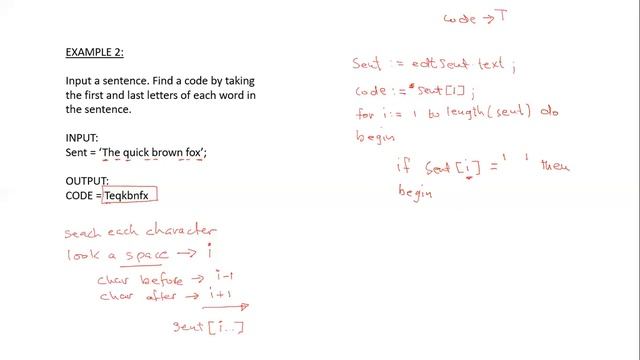 EXAMPLE 2:
Input a sentence. Find a code by taking
the first and last letters of each word in
the sentence.
INPUT:
Sent = ‘The quick brown fox’;
OUTPUT:
CODE = Teqkbnfx
seach each character
look a space → i
char before → i-1
char after → i+1
sent[i..]
code → T
Sent := edtSent text ;
code := sent[1] ;
for i := 1 to length(sent) do
begin
if sent[i] = ' ' then
begin